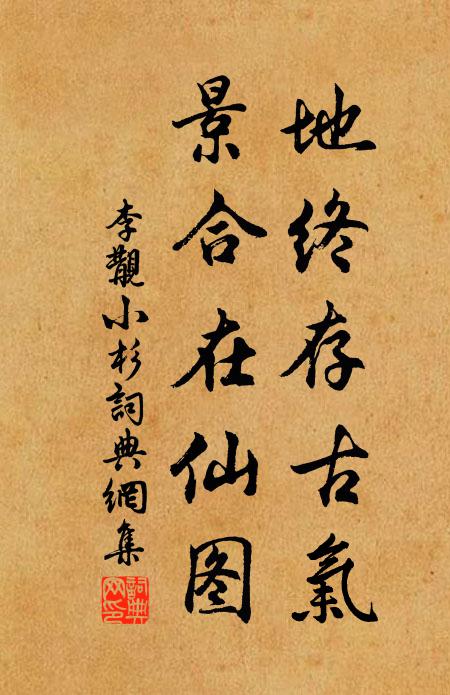 地终存古氣
景合在仙图
李覯小杉詞典網集
詞典网印